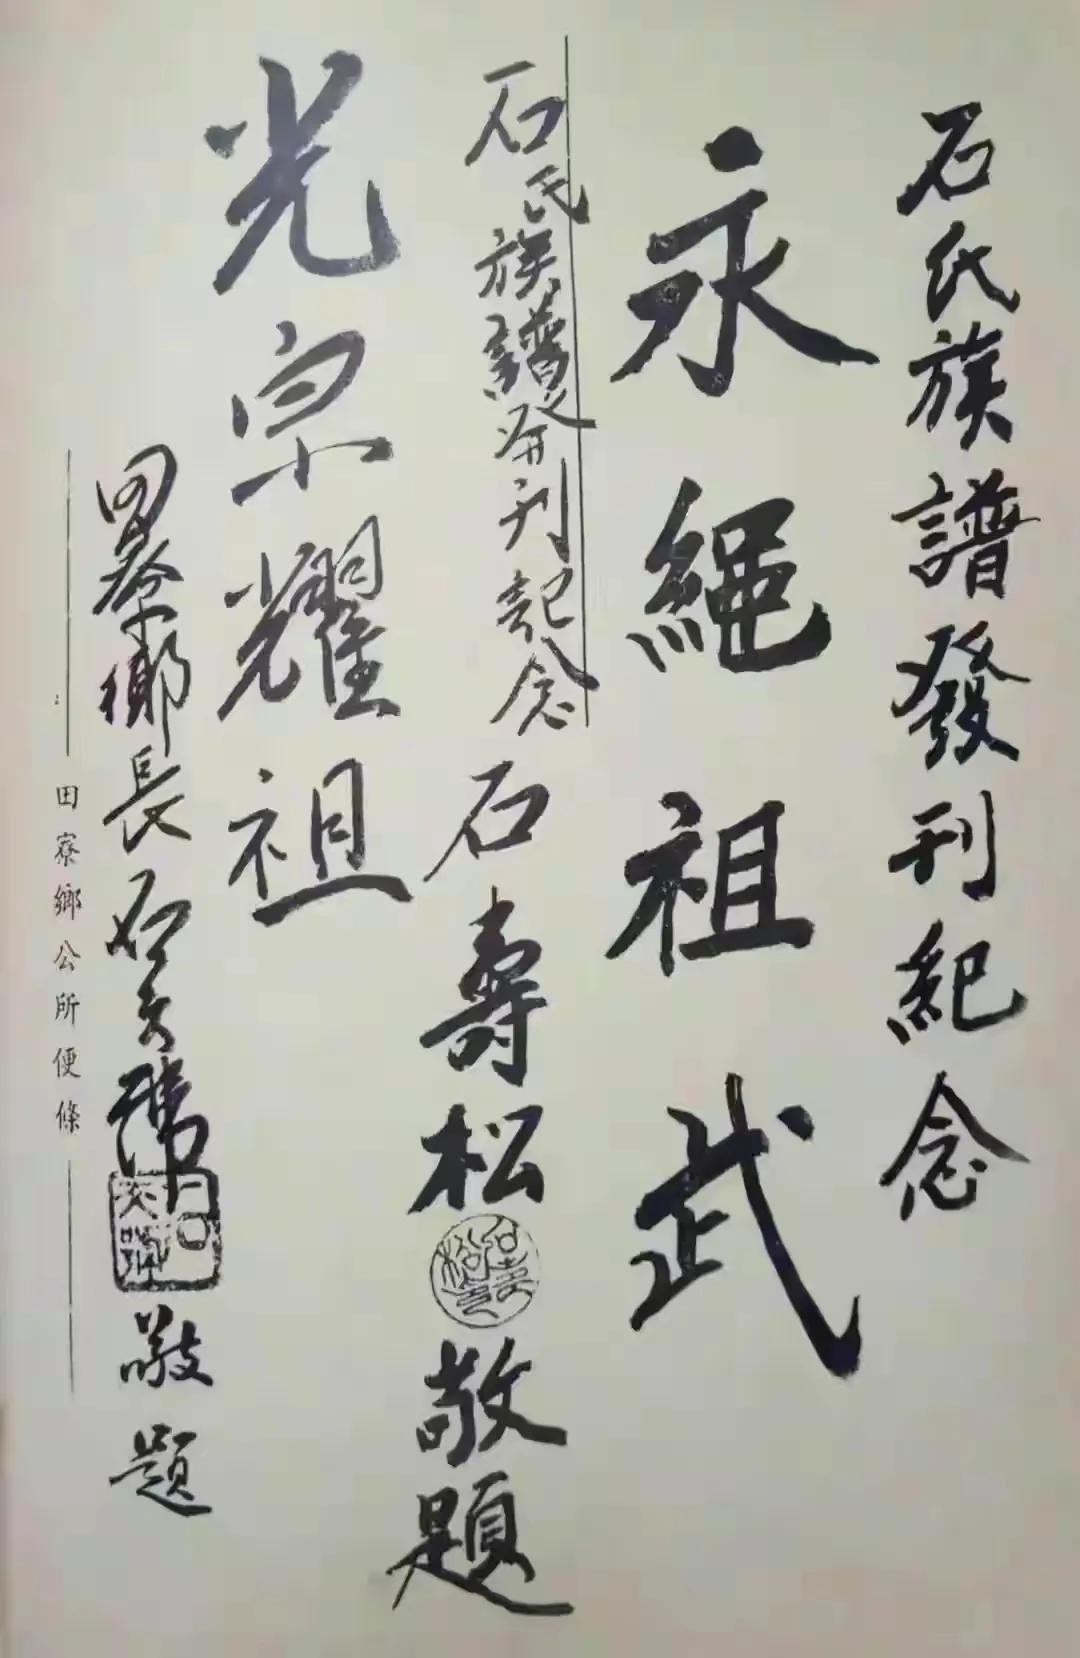 石氏族譜發刊紀念
永繩祖武
石壽松
敬題
石氏族譜發刊記念
光宗耀祖
田寮鄉長石
敬題
田寮鄉公所便條